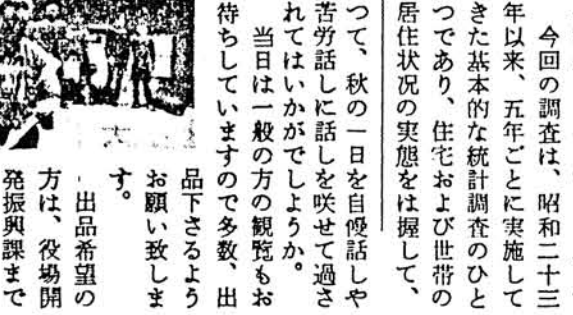 今回の調査は、昭和二十三
年以来、五年ごとに実施して
きた基本的な統計調査のひと
つであり、住宅および世帯の
居住状況の実態をは握して、
つて、秋の一日を自慢話しや
苦労話しに話しを咲せて過さ
れてはいかがでしようか。
当日は一般の方の観覧もお
待ちしていますので多数、出
品下さるよう
お願い致しま
す。
出品希望の
方は、役場開
発振興課まで